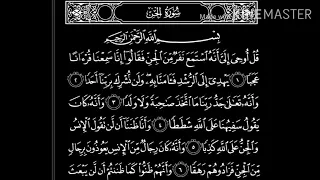 Made With KINEMASTER
سُورَةُ الجِنّ
بِسْمِ اللَّهِ الرَّحْمَٰنِ الرَّحِيمِ
قُلْ أُوحِىَ إِلَىَّ أَنَّهُ ٱسْتَمَعَ نَفَرٌ مِّنَ ٱلْجِنِّ فَقَالُوٓا۟ إِنَّا سَمِعْنَا قُرْءَانًا
عَجَبًا ١ يَهْدِىٓ إِلَى ٱلرُّشْدِ فَـَٔامَنَّا بِهِۦ وَلَن نُّشْرِكَ بِرَبِّنَآ أَحَدًا ٢
وَأَنَّهُۥ تَعَٰلَىٰ جَدُّ رَبِّنَا مَا ٱتَّخَذَ صَٰحِبَةً وَلَا وَلَدًا ٣ وَأَنَّهُۥ كَانَ
يَقُولُ سَفِيهُنَا عَلَى ٱللَّهِ شَطَطًا ٤ وَأَنَّا ظَنَنَّآ أَن لَّن تَقُولَ ٱلْإِنسُ
وَٱلْجِنُّ عَلَى ٱللَّهِ كَذِبًا ٥ وَأَنَّهُۥ كَانَ رِجَالٌ مِّنَ ٱلْإِنسِ يَعُوذُونَ بِرِجَالٍ
مِّنَ ٱلْجِنِّ فَزَادُوهُمْ رَهَقًا ٦ وَأَنَّهُمْ ظَنُّوا۟ كَمَا ظَنَنتُمْ أَن لَّن يَبْعَثَ